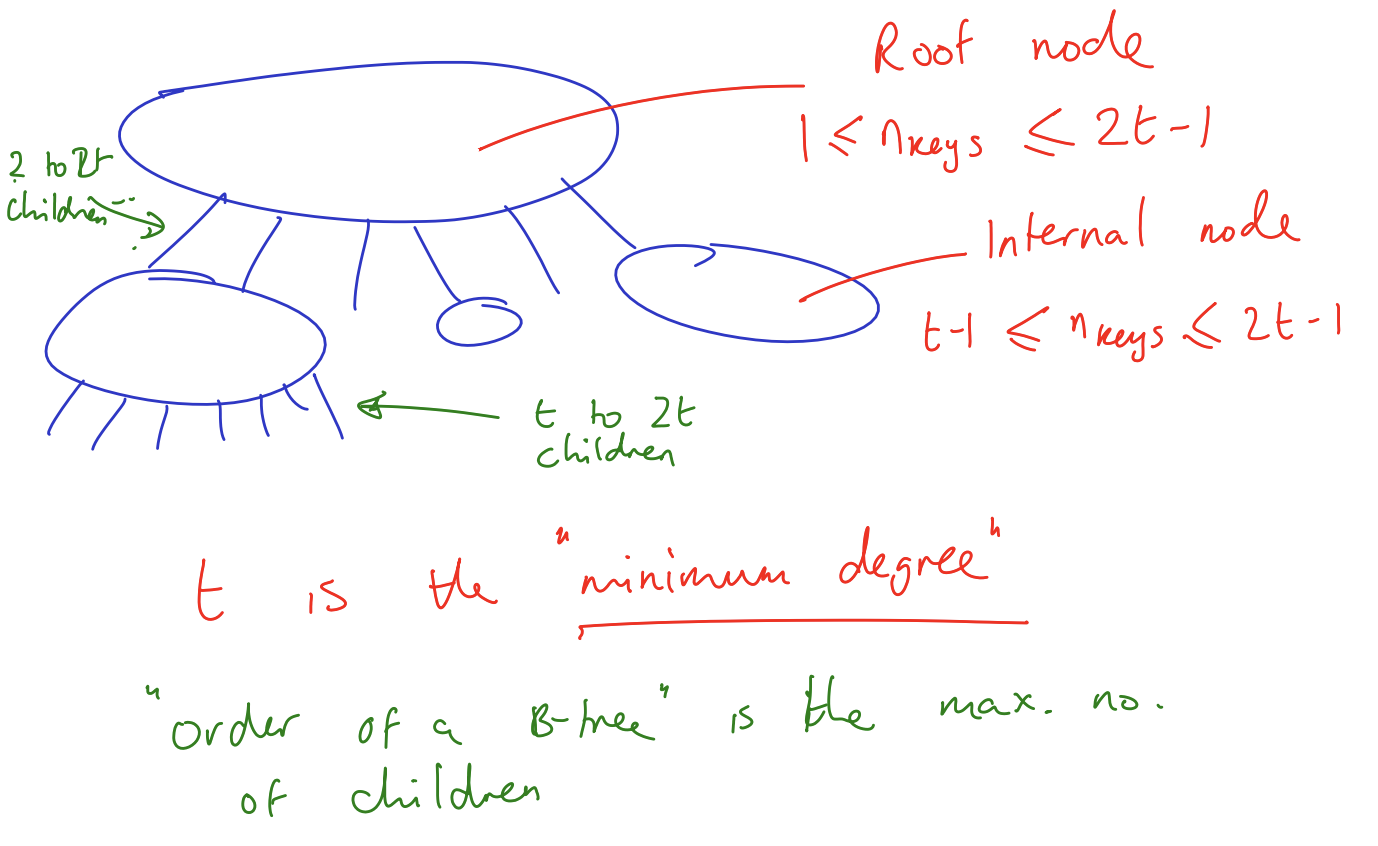 Root node
1 ≤ nkeys ≤ 2t-1
2 to 2t
children
Internal node
t-1 ≤ nkeys ≤ 2t-1
t to 2t
children
t is the "minimum degree"
"Order of a B-tree" is the max. no.
of children